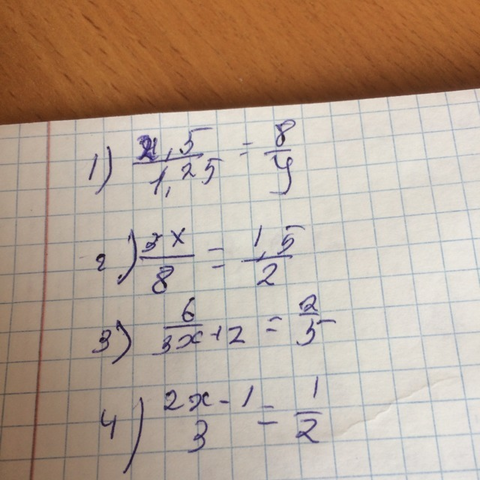 1) 2,5/1,25 = 8/y
2) 3x/8 = 1,5/2
3) 6/3x+2 = 2/5
4) 2x-1/3 = 1/2